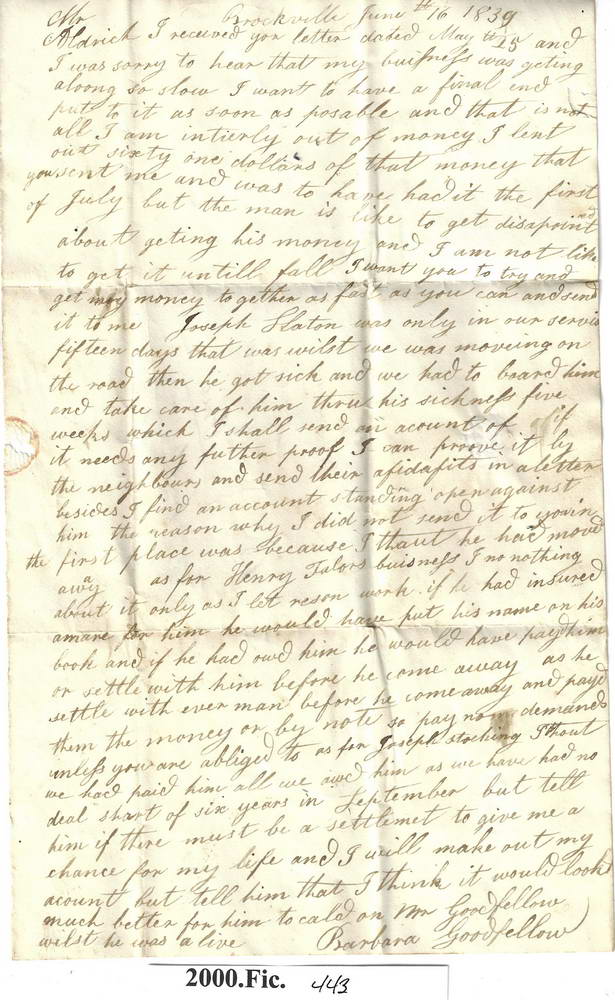 Mr Brockville June th 16 1839
Aldrich I received yor letter dated May th 25 and
I was sorry to hear that my buisness was geting
aloong so slow I want to have a final end
put to it as soon as posable and that is not
all I am intierly out of money I lent
out sixty one dollars of that money that
you sent me and was to have had it the first
of July but the man is like to get disapointed
about geting his money and I am not like
to get it untill fall I want you to try and
get my money together as fast as you can and send
it to me Joseph Slaton was only in our servis
fifteen days that was wilst we was moveing on
the road then he got sick and we had to board him
and take care of him thru his sickness five
weeks which I shall send an acount of if
it needs any futher proof I can proove it by
the neighbours and send their afidafits in a letter
besides I find an account standing open against
him the reason why I did not send it to you in
the first place was because I thaut he had moved
away as for Henry Talors buisness I no nothing
about it only as I let reson work if he had insured
amare for him he would have put his name on his
book and if he had owd him he would have payd him
or settle with him before he come away as he
settle with ever man before he come away and payd
them the money or by note so pay no demands
unless you are abliged to as for Joseph stocking I thout
we had paid him all we awd him as we have had no
deal short of six years in September but tell
him if there must be a settlemet to give me a
chance for my life and I will make out my
acount but tell him that I think it would look
much better for him to cald on Mr Goodfellow
wilst he was alive Barbara Goodfellow
2000.Fic. 443